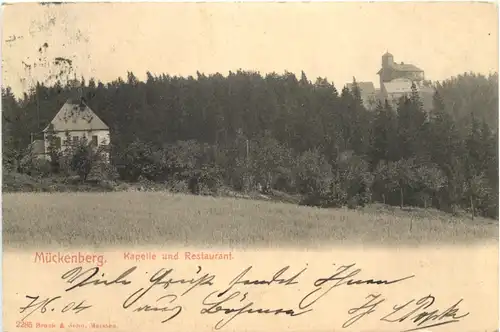 Mückenberg. Kapelle und Restaurant.
Viel Grüße sendet Ihnen
7/5. 04 aus Böhmen Ihr
2295 Bruck & Sohn, Meissen.